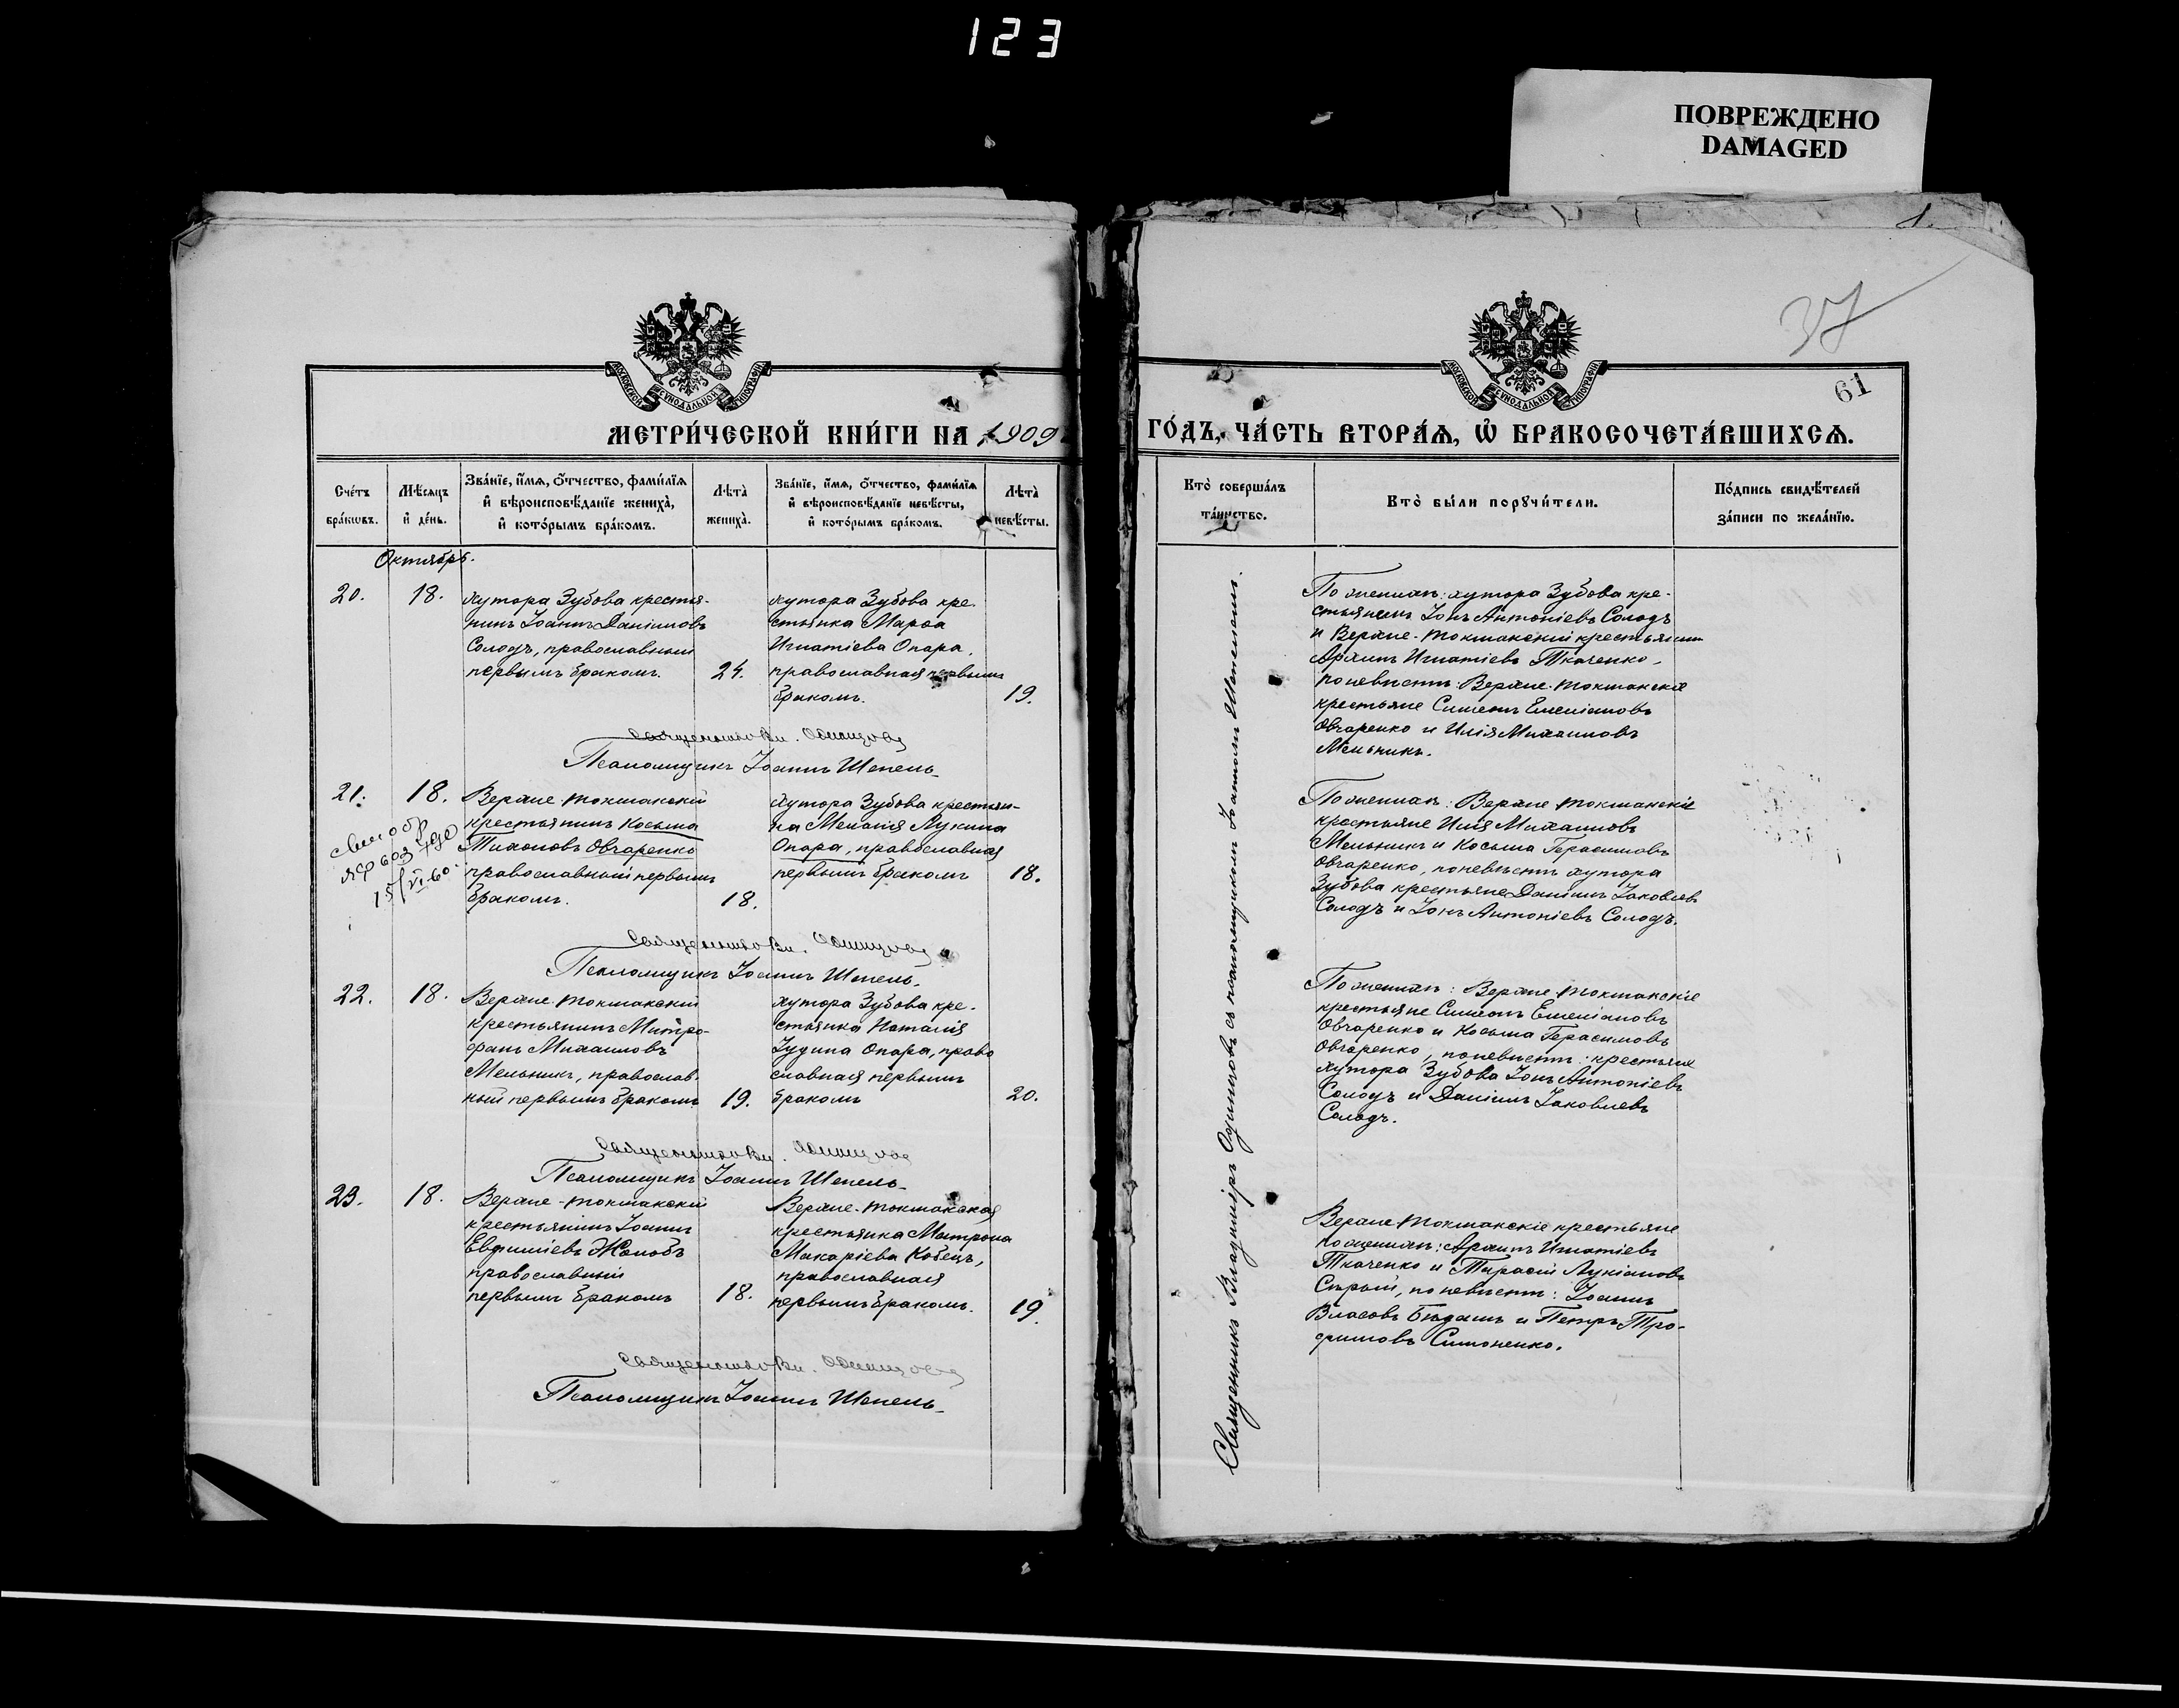 123
ПОВРЕЖДЕНО
DAMAGED
37
61
МОСКОВСКОЙ СѴНОДАЛЬНОЙ ТИПОГРАФІИ
МОСКОВСКОЙ СѴНОДАЛЬНОЙ ТИПОГРАФІИ
МЕТРИ́ЧЕСКОЙ КНИ́ГИ НА 1909
ГО́ДЪ, ЧА́СТЬ ВТОРА́Ѧ, Ѡ҆ БРАКОСОЧЕТА́ВШИХСѦ.
Сче́тъ
бра́кѡвъ.
Мѣ́сѧцъ
и҆ де́нь.
Зва́нїе, и҆́мѧ, ѻ҆́тчество, фами́лїѧ
и҆ вѣроисповѣ́данїе жениха̀,
и҆ кото́рымъ бра́комъ.
Лѣта̀
жениха̀.
Зва́нїе, и҆́мѧ, ѻ҆́тчество, фами́лїѧ
и҆ вѣроисповѣ́данїе невѣ́сты,
и҆ кото́рымъ бра́комъ.
Лѣта̀
невѣ́сты.
Кто̀ соверша́лъ
та́инство.
Кто̀ бы́ли порꙋчи́тели.
По́дпись свидѣ́телей
за́писи по жела́нїю.
Октябрь.
20.
18.
хутора Зубова крестья-
нинъ Іоаннъ Даніиловъ
Солодъ, православный
первымъ бракомъ.
24.
хутора Зубова кре-
стьянка Марѳа
Игнатіева Опара,
православная первымъ
бракомъ.
19.
По женихѣ: хутора Зубова кре-
стьянинъ Іонъ Антоніевъ Солодъ
и Верхне-токмакскій крестьянинъ
Архипъ Игнатіевъ Ткаченко,
по невѣстѣ: Верхне-токмакскіе
крестьяне Симеонъ Емеліановъ
Овчаренко и Илія Михаиловъ
Мельникъ.
Священникъ Вл. Одинцовъ
Псаломщикъ Іоаннъ Шепель
21.
18.
Верхне-токмакскій
крестьянинъ Косьма
Тихоновъ Овчаренко
православный первымъ
бракомъ.
18.
хутора Зубова крестьян-
ка Меланія Лукина
Опара, православная
первымъ бракомъ
18.
15/VI-60
По женихѣ: Верхне токмакскіе
крестьяне Илія Михаиловъ
Мельникъ и Косьма Герасимовъ
Овчаренко, по невѣстѣ хутора
Зубова крестьяне Даніилъ Іаковлевъ
Солодъ и Іонъ Антоніевъ Солодъ.
Священникъ Вл. Одинцовъ
Псаломщикъ Іоаннъ Шепель.
22.
18.
Верхне-токмакскій
крестьянинъ Митро-
фанъ Михаиловъ
Мельникъ, православ-
ный первымъ бракомъ
19.
хутора Зубова кре-
стьянка Наталія
Іудина Опара, право
славная первымъ
бракомъ
20.
По женихѣ: Верхне токмакскіе
крестьяне Симеонъ Емеліановъ
Овчаренко и Косьма Герасимовъ
Овчаренко, по невѣстѣ: крестьяне
хутора Зубова Іонъ Антоніевъ
Солодъ и Даніилъ Іаковлевъ
Солодъ.
Священникъ Вл. Одинцовъ
Псаломщикъ Іоаннъ Шепель
23.
18.
Верхне-токмакскій
крестьянинъ Іоаннъ
Евѳиміевъ Жолобъ
православный
первымъ бракомъ
18.
Верхне-токмакская
крестьянка Матрона
Макаріева Кобецъ,
православная
первымъ бракомъ.
19.
Верхне токмакскіе крестьяне
по женихѣ: Архипъ Игнатіевъ
Ткаченко и Тарасій Лукіановъ
Сѣрый, по невѣстѣ: Іоаннъ
Власовъ Бѣдашъ и Петръ Тро-
фимовъ Симоненко.
Священникъ Вл. Одинцовъ
Псаломщикъ Іоаннъ Шепель
Священникъ Владиміръ Одинцовъ съ псаломщикомъ Іоанномъ Шепелемъ.